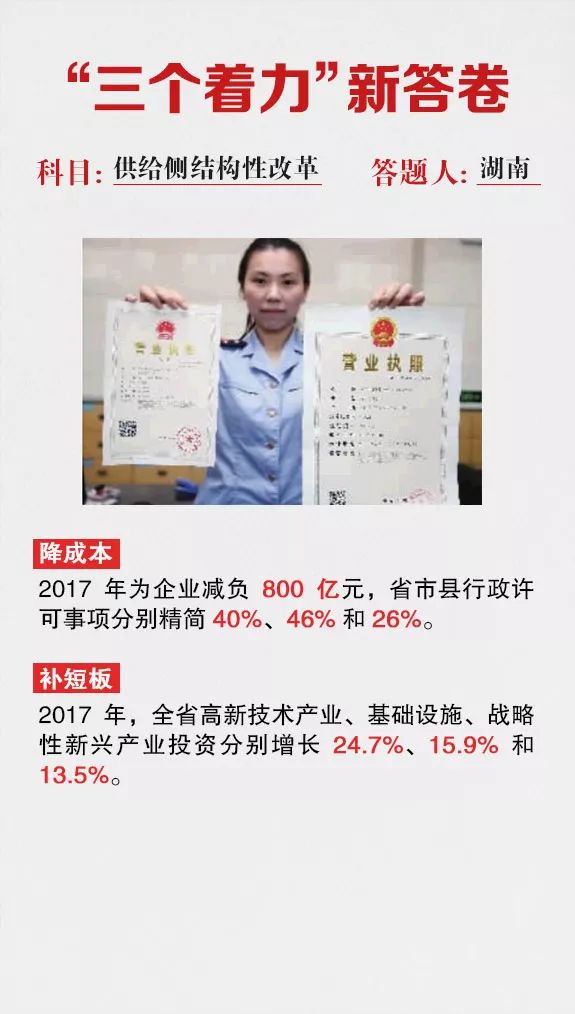 “三个着力”新答卷
科目: 供给侧结构性改革 答题人: 湖南
营业执照
营业执照
降成本
2017 年为企业减负 800 亿元，省市县行政许
可事项分别精简 40%、46% 和 26%。
补短板
2017 年，全省高新技术产业、基础设施、战略
性新兴产业投资分别增长 24.7%、15.9% 和
13.5%。